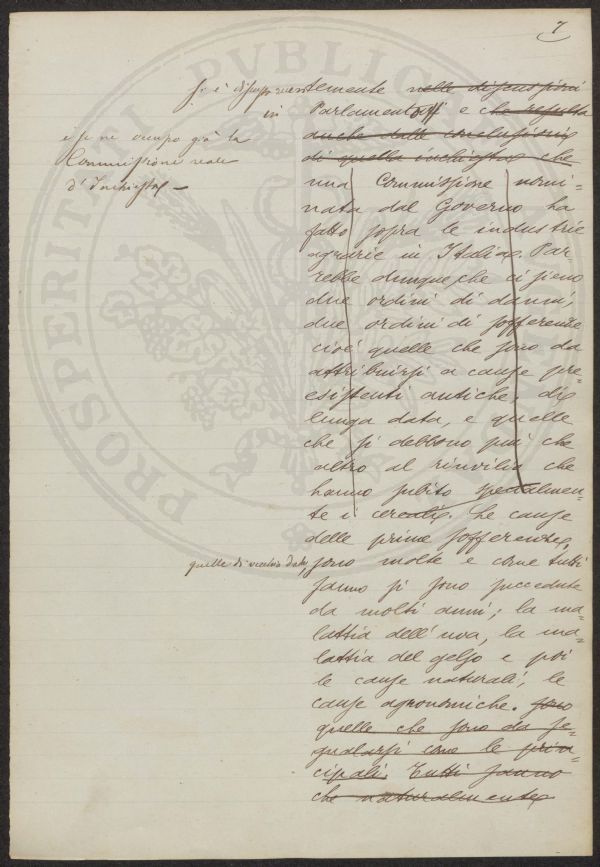 7
si è discusso recentemente nelle discussioni
in Parlamento e che risulta
anche dalle conclusioni
di quella inchiesta che
e se ne occupò già la
Commissione reale
d'Inchiesta —
una Commissione nomi=
nata dal Governo ha
fatto sopra le industrie
agrarie in Italia. Par
rebbe dunque che ci sieno
due ordini di danni,
due ordini di sofferenze
cioè quelle che sono da
attribuirsi a cause pre=
esistenti antiche, di
lunga data, e quelle
che si debbono più che
altro al rinvilio che
hanno subito specialmen=
te i cereali. Le cause
delle prime sofferenze,
quelle di vecchia data, sono molte e come tutti
sanno si sono succedute
da molti anni; la ma=
lattia dell'uva, la ma=
lattia del gelso e poi
le cause naturali, le
cause agronomiche. sono
quelle che sono da se=
gnalarsi come le prin=
cipali. Tutti sanno
che naturalmente
PROSPERITATI PVBLICAE